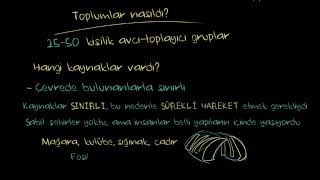 Toplumlar nasıldı?
25-50 kişilik avcı-toplayıcı gruplar
Hangi kaynaklar vardı?
- Çevrede bulunanlarla sınırlı
Kaynaklar SINIRLI, bu nedenle SÜREKLİ HAREKET etmek gerekliydi
Sabit şehirler yoktu, ama insanlar belli yapıların içinde yaşıyordu
Mağara, kulübe, sığınak, çadır
Fosil